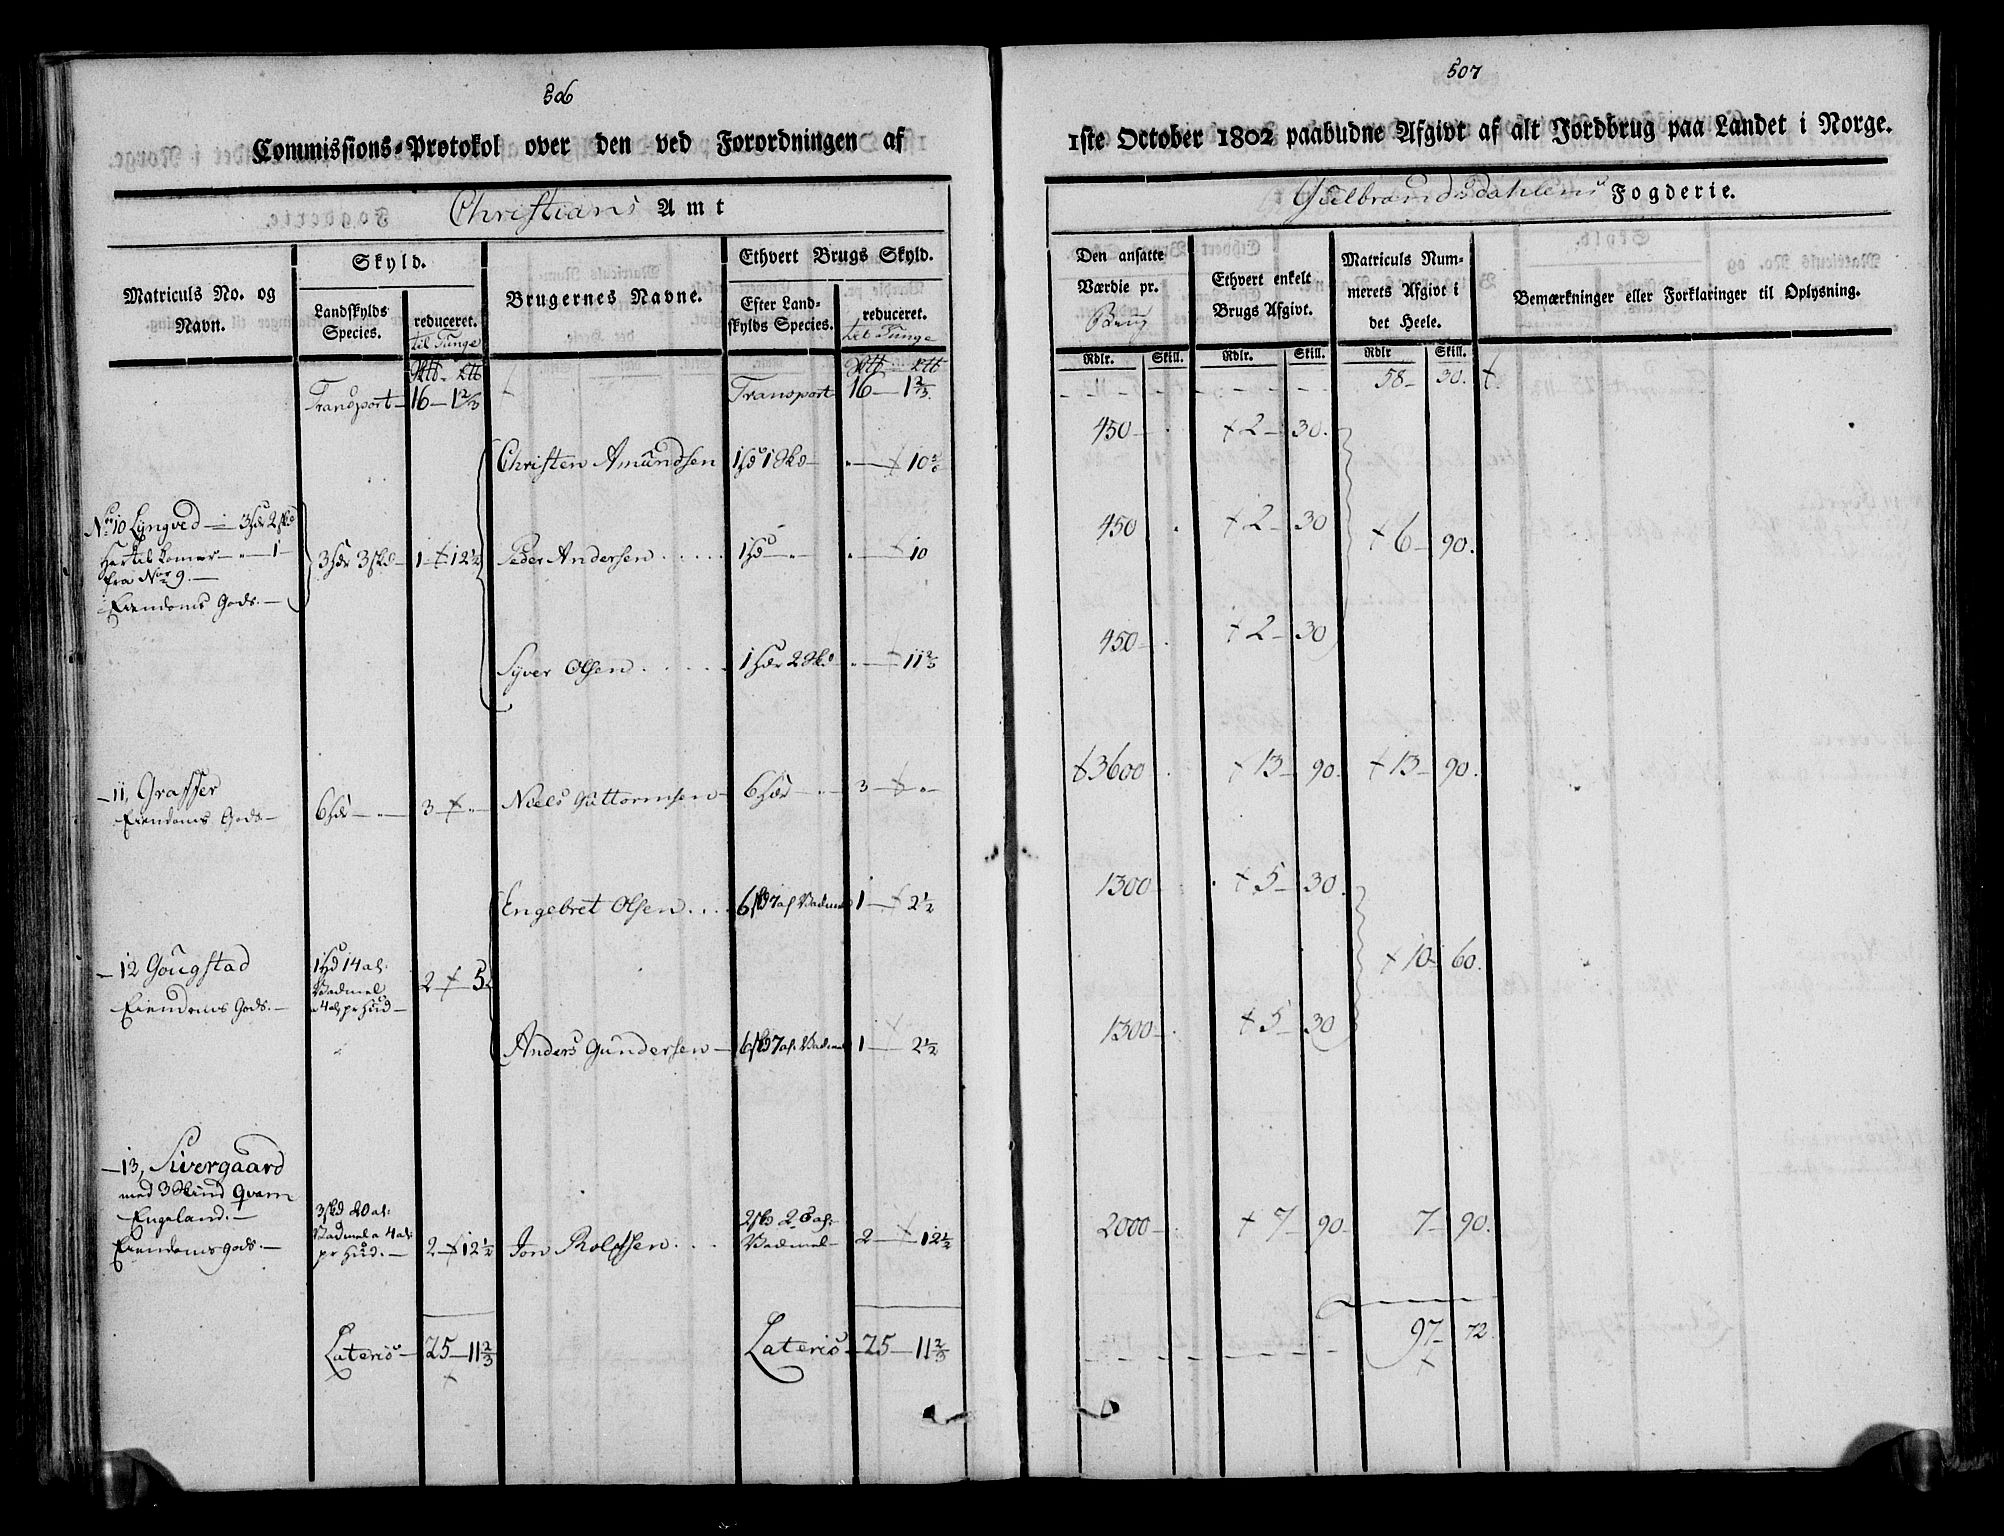 506
Commissions-Protokol over den ved Forordningen af
Christians Amt
Matriculs No. og Navn.
Skyld.
Landskylds Species.
reduceret.
til Tunge
Brugernes Navne.
Ethvert Brugs Skyld.
Efter Landskylds Species.
reduceret.
til Tunge
Transport — 16 — 1 2/3
Transport 16 — 1 2/3.
Christen Amundsen 1 Hd 1 Skd — „ — 10 5/6
No 10 Lyngved — 3 Hdr 2 skd
Hertil komer — „ — 1 —
fra Nor 9. —
Eiendoms Gods. —
3 Hdr 3 skd — 1 — 12 1/2
Peder Andersen . . . . . 1 Hd — „ — „ — 10
Syver Olsen . . . . . 1 Hdr 2 Skd „ — 11 2/3
— 11, Grasser
Eiendoms Gods —
6 Hdr — „ — 3 — „ —
Niels Guttormsen — 6 Hdr — „ — 3 — „ —
Engebret Olsen . . . . 6 skd 7 al. Vadmel 1 — 2 1/2
— 12 Gougstad
Eiendoms Gods. —
1 Hd 14 al:
Vadmel
a 4 al: pr Hud —
2 — 5
Anders Gundersen — 6 skd 7 al. Vadmel 1 — 2 1/2
— 13, Sivergaard
med 3 Skind Qvarn
Engeland. —
Eiendoms gods. —
3 skd 20 al:
Vadmel a 4 al:
pr Hud. —
2 — 12 1/2
Jon Rolfsen . . . .
Vadmel — 2 — 12 1/2
Lateris — 25 — 11 2/3
Lateris — 25 — 11 2/3
507
1ste October 1802 paabudne Afgivt af alt Jordbrug paa Landet i Norge.
Guelbrandsdahlens Fogderie.
Den ansatte Værdie pr.
Brug
Ethvert enkelt Brugs Afgivt.
Matriculs Nummerets Afgivt i det Heele.
Bemærkninger eller Forklaringer til Oplysning.
Rdlr. Skill. Rdlr. Skill. Rdlr Skill.
58 — 30.
450 — 2 — 30.
450 2 — 30 6 — 90.
450 — 2 — 30
3600 13 — 90. 13 — 90.
1300 — 5 — 30.
10 — 60.
1300 — 5 — 30
2000 — 7 — 90. 7 — 90.
97 — 72.